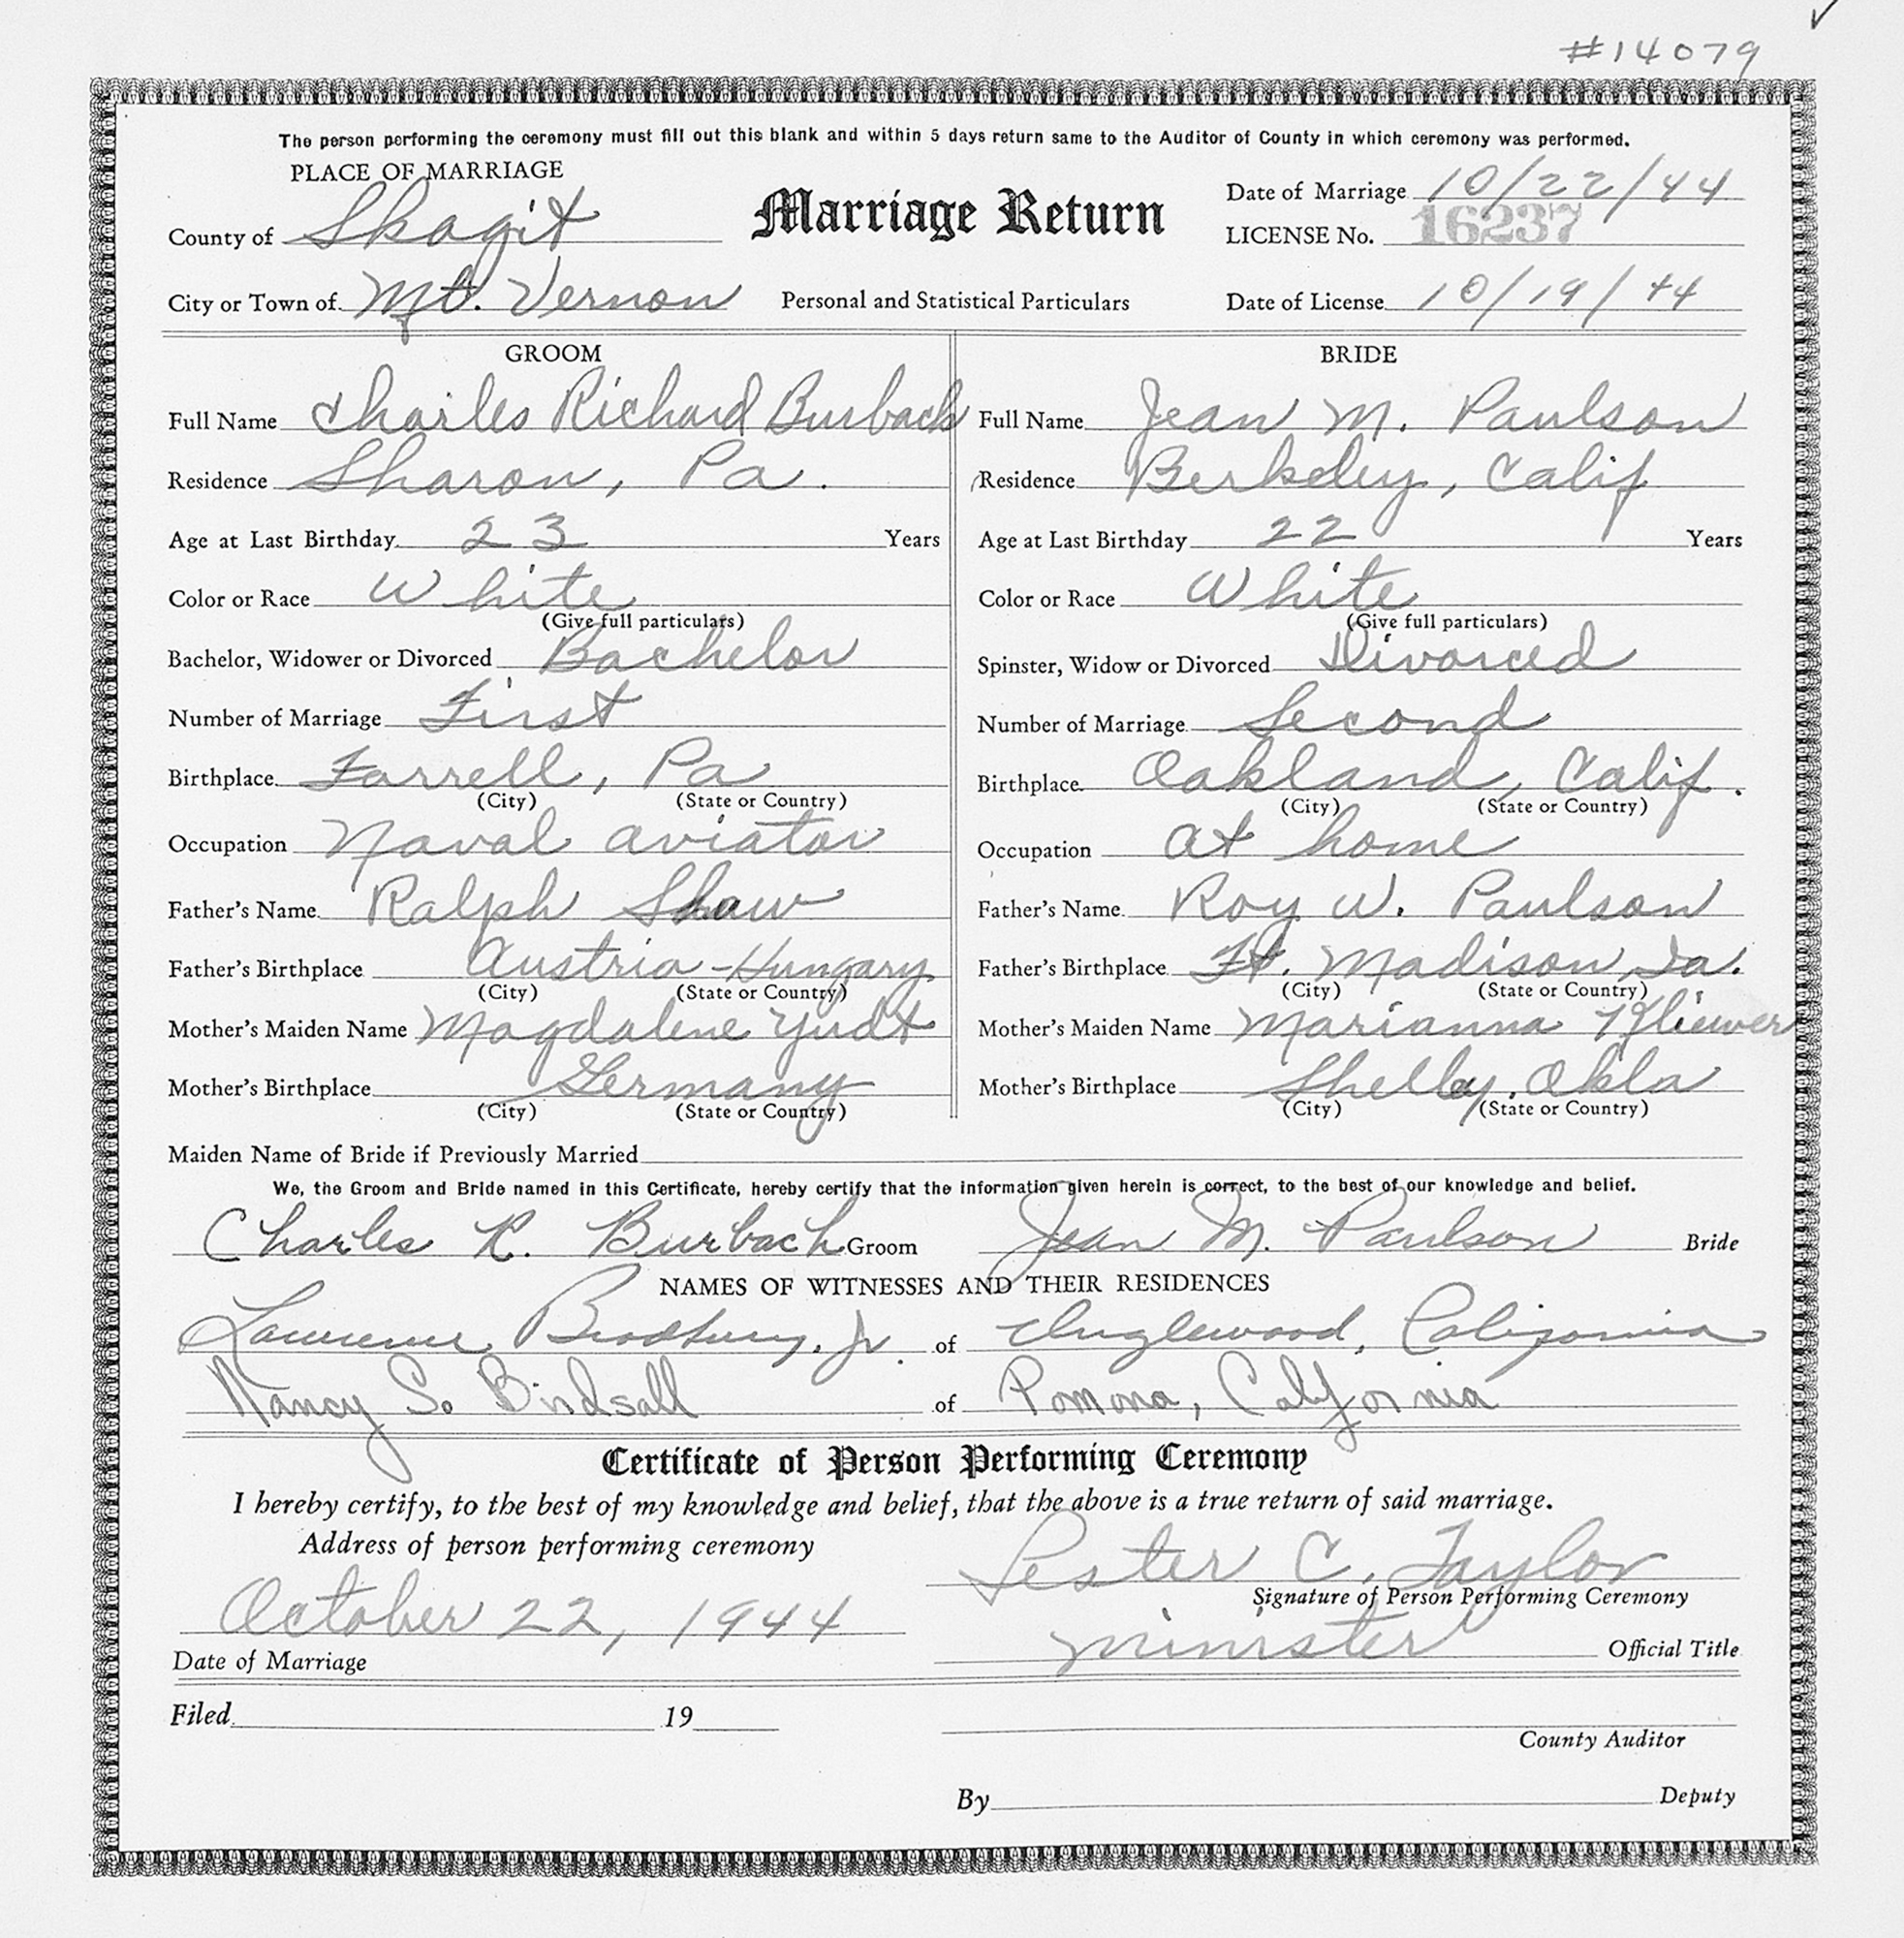 #14079
The person performing the ceremony must fill out this blank and within 5 days return same to the Auditor of County in which ceremony was performed.
PLACE OF MARRIAGE
County of Skagit
City or Town of Mt. Vernon
Marriage Return
Personal and Statistical Particulars
Date of Marriage 10/22/44
LICENSE No. 16237
Date of License 10/19/44
GROOM
Full Name Charles Richard Burbach
Residence Sharon, Pa.
Age at Last Birthday 23 Years
Color or Race White
(Give full particulars)
Bachelor, Widower or Divorced Bachelor
Number of Marriage First
Birthplace Farrell, Pa
(City) (State or Country)
Occupation Naval aviator
Father's Name Ralph Shaw
Father's Birthplace Austria-Hungary
(City) (State or Country)
Mother's Maiden Name Magdalene Yudt
Mother's Birthplace Germany
(City) (State or Country)
BRIDE
Full Name Jean M. Paulson
Residence Berkeley, Calif
Age at Last Birthday 22 Years
Color or Race White
(Give full particulars)
Spinster, Widow or Divorced Divorced
Number of Marriage Second
Birthplace Oakland, Calif.
(City) (State or Country)
Occupation at home
Father's Name Roy W. Paulson
Father's Birthplace Ft. Madison, Ia.
(City) (State or Country)
Mother's Maiden Name Marianna Kliewer
Mother's Birthplace Shelley, Okla
(City) (State or Country)
Maiden Name of Bride if Previously Married
We, the Groom and Bride named in this Certificate, hereby certify that the information given herein is correct, to the best of our knowledge and belief.
Charles R. Burbach Groom Jean M. Paulson Bride
NAMES OF WITNESSES AND THEIR RESIDENCES
Lawrence Bradbury, Jr. of Inglewood, California
Nancy S. Birdsall of Pomona, California
Certificate of Person Performing Ceremony
I hereby certify, to the best of my knowledge and belief, that the above is a true return of said marriage.
Address of person performing ceremony
Lester C. Taylor
Signature of Person Performing Ceremony
October 22, 1944
Date of Marriage
minister Official Title
Filed 19
County Auditor
By Deputy